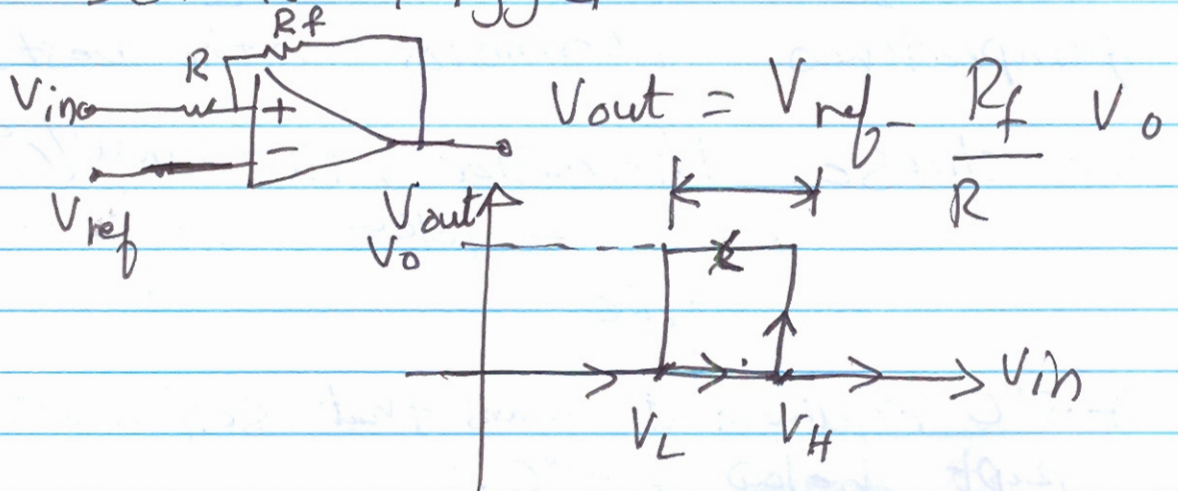 Rf
R
Vin
+
-
Vref
Vout = Vref - Rf/R Vo
Vout
Vo
Vin
VL VH